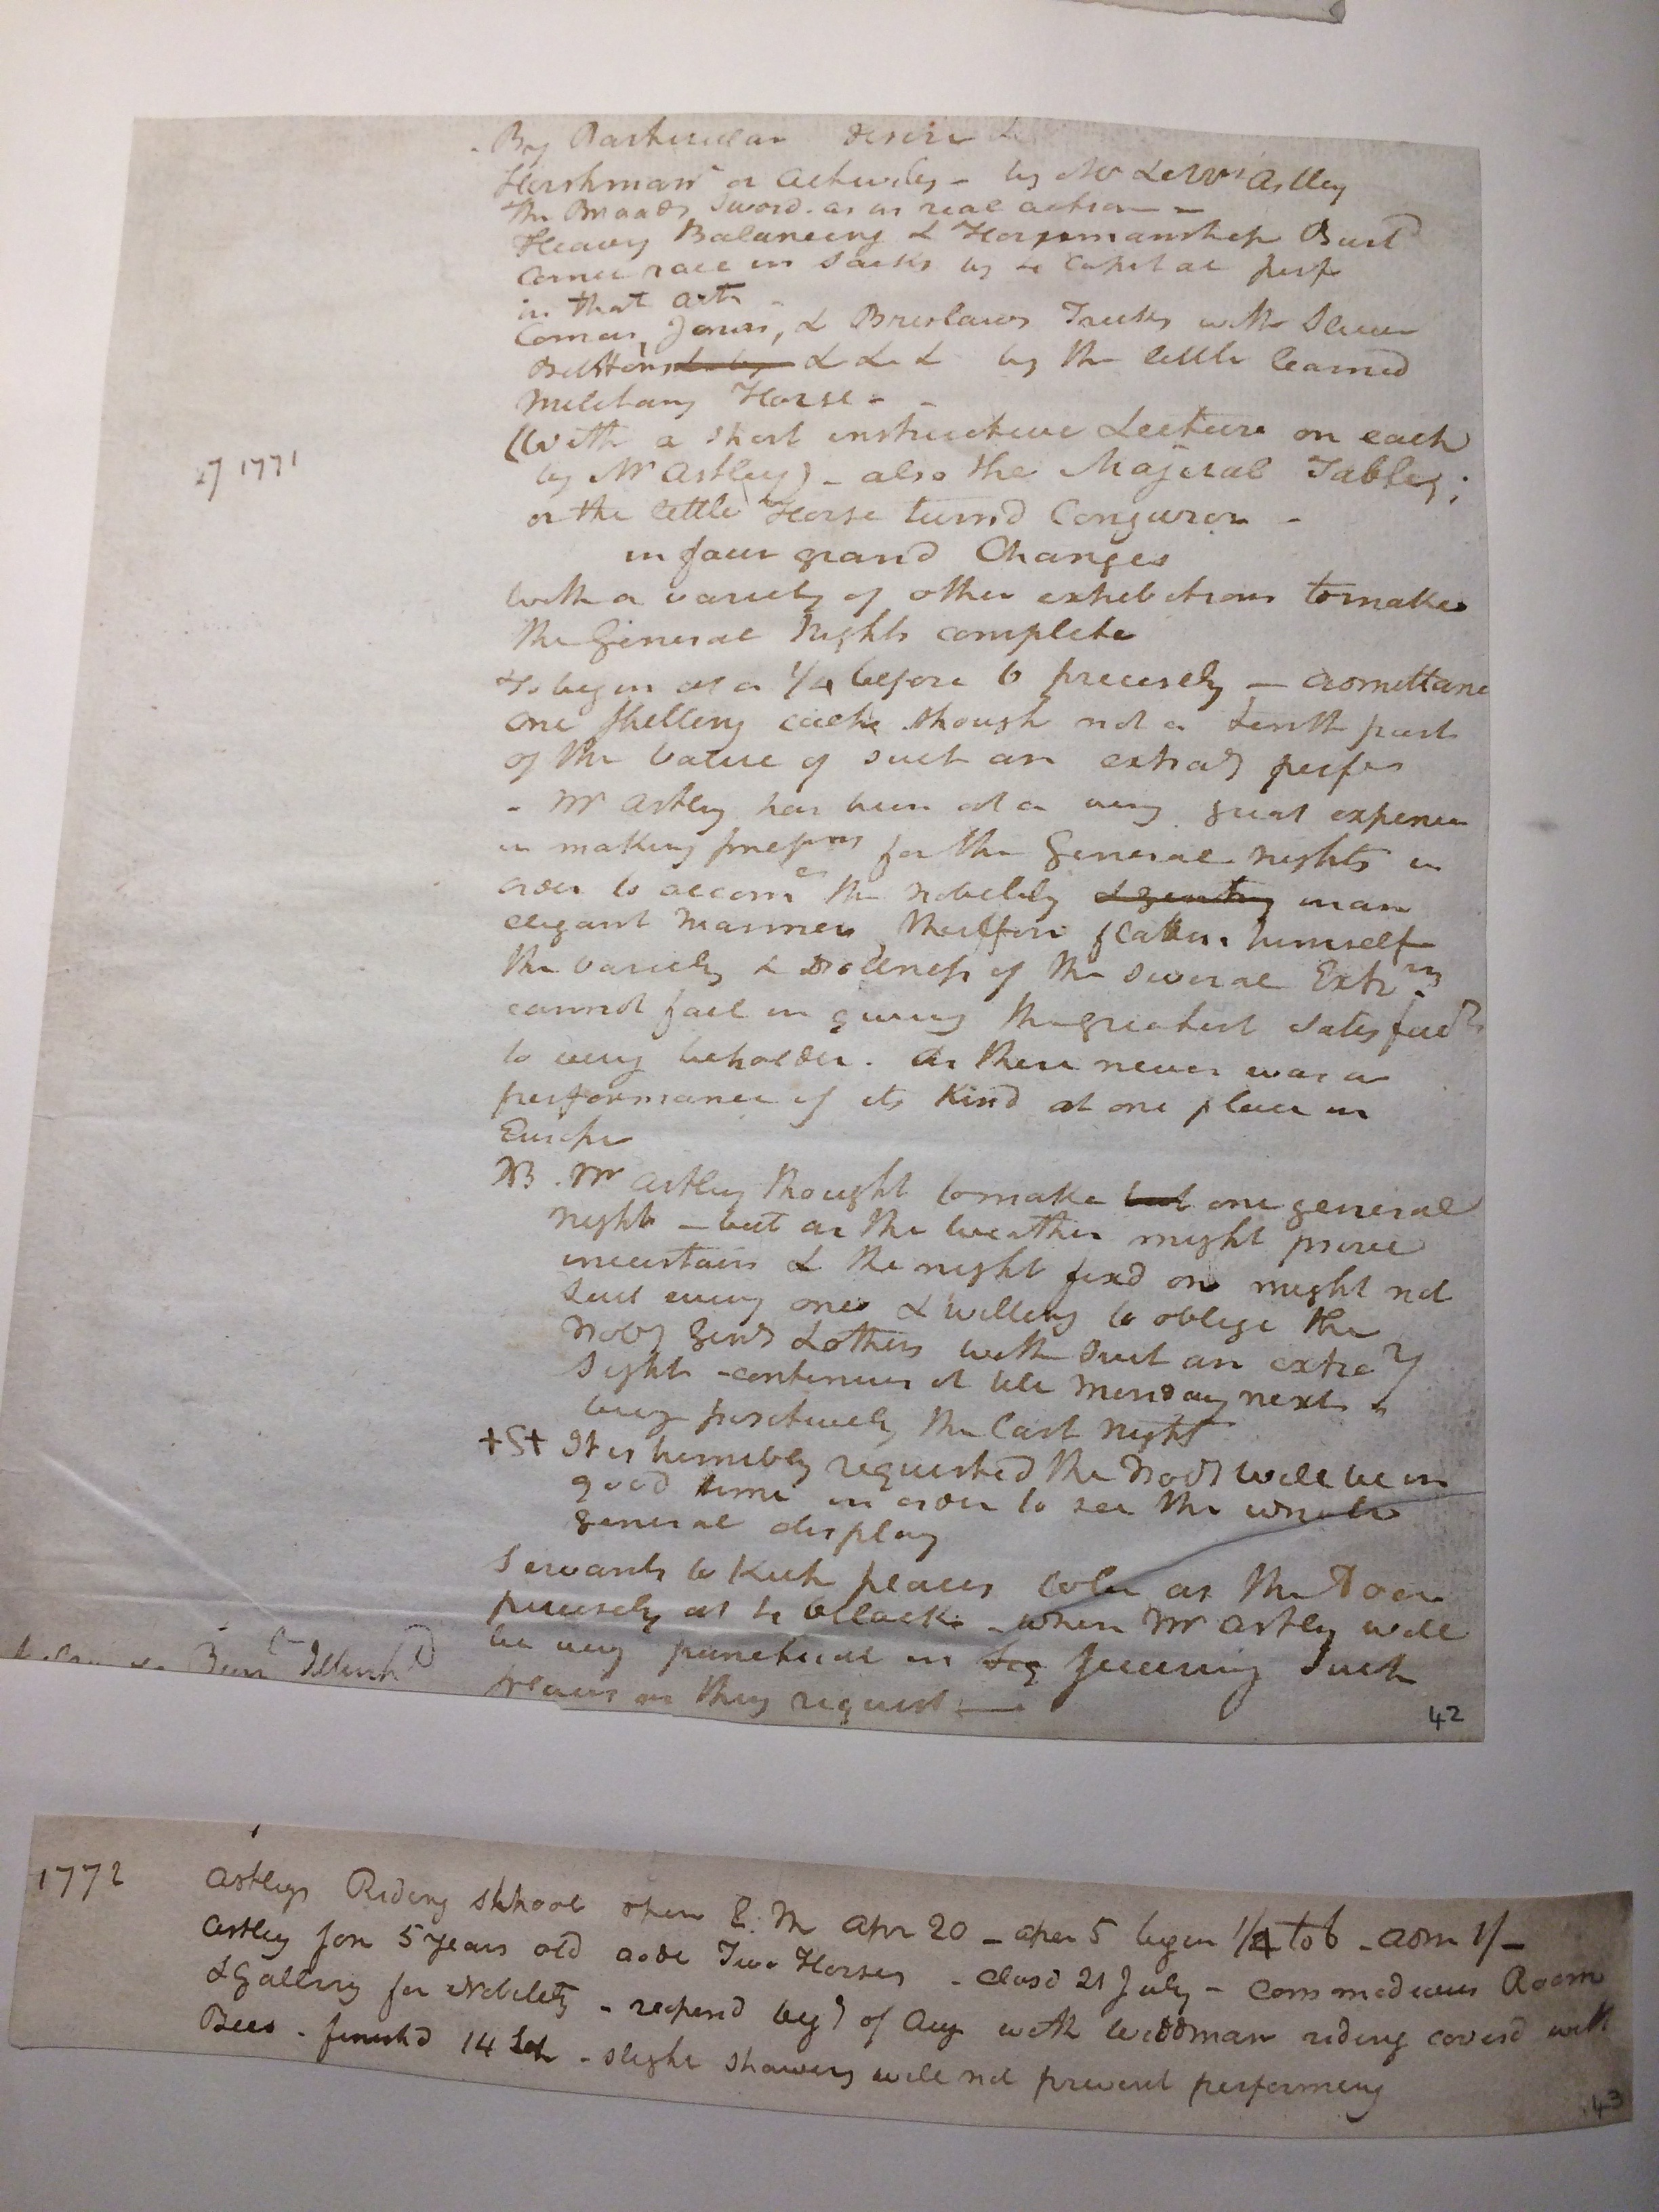 By Particular desire &
Horsman or Activity - by Mr Lewis Astley
The Broad Sword. as in real action -
Heavy Balancing & Horsemanship Burl
Comic race in Sacks by 4 Capital perf
in that art -
Comus, Jonas, & Breslaws Tricks with Sleeve
Buttons & & & by the little learned
Military Horse - -
(With a short instructive Lecture on each
by Mr Astley) - also the Magical Tables;
or the little Horse turnd Conjuror -
in four grand Changes
with a variety of other exhibitions to make
the General Nights complete
To begin at a 1/4 before 6 precisely - admittanc
one shilling each though not a tenth part
of the value of such an extray perfs
- Mr Astley has been at a very great expence
in making preprns for the General nights in
order to accome the Nobility & gentry in an
elegant manner, therefore flatters himself
the variety & Drollness of the several Extrys
cannot fail in giving the greatest satisfacn
to every beholder. as there never was a
performance of its Kind at one place in
Europe
NB. Mr Astley thought to make but one general
night - but as the weather might prove
uncertain & the night fixd on might not
suit every one & willing to oblige the
Noby Gend & others with such an extray
sight - continues it till Monday next
being positively the last night
+S+ It is humbly requested the Noby will be in
good time in order to see the whole
general display
Servants to Keep places at the Door
precisely at 4 oClock - when Mr Astley will
be very punctual in Securing such
places as they request -
27 1771
42
1772 Astleys Riding School open E. M Apr 20 - open 5 begin 1/4 to 6 - adm 1/-
Astley Jun 5 years old rode Two Horses - closd 21 July - commodious Room
& Gallery for Nobility - reopend begg of Aug with Wildman riding coverd with
Bees - finishd 14 Sep - slight showers will not prevent performing
43